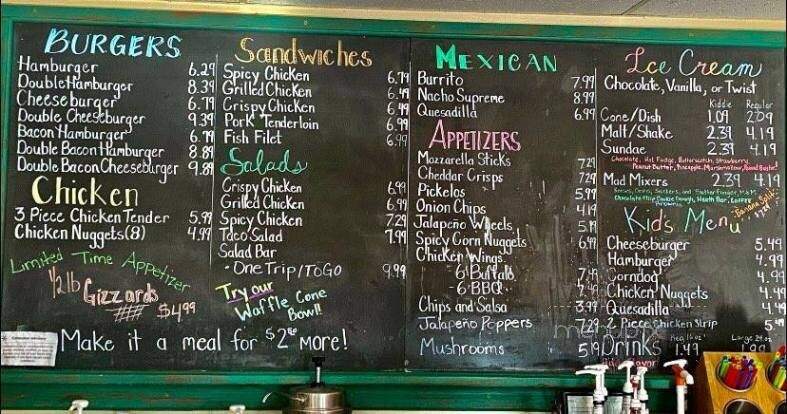 BURGERS
Hamburger 6.29
Double Hamburger 8.39
Cheeseburger 6.79
Double Cheeseburger 9.39
Bacon Hamburger 6.79
Double Bacon Hamburger 8.89
Double Bacon Cheeseburger 9.89
Chicken
3 Piece Chicken Tender 5.99
Chicken Nuggets (8) 4.99
Limited Time Appetizer
1/2 lb Gizzards
$4.99
Sandwiches
Spicy Chicken 6.79
Grilled Chicken 6.49
Crispy Chicken 6.49
Pork Tenderloin 6.99
Fish Filet 6.99
Salads
Crispy Chicken 6.99
Grilled Chicken 6.99
Spicy Chicken 7.29
Taco Salad 7.99
Salad Bar
- One Trip/To Go 9.99
Try our
Waffle Cone
Bowl!
Make it a meal for $2 more!
MEXICAN
Burrito 7.99
Nacho Supreme 8.99
Quesadilla 6.99
APPETIZERS
Mozzarella Sticks 7.29
Cheddar Crisps 7.29
Pickelos 5.99
Onion Chips 4.19
Jalapeño Wheels 5.19
Spicy Corn Nuggets 6.49
Chicken Wings
- 6 Buffalo
- 6 BBQ
Chips and Salsa 3.99
Jalapeño Poppers 7.29
Mushrooms 5.19
Ice Cream
Chocolate, Vanilla, or Twist
Kiddie Regular
Cone/Dish 1.09 2.09
Malt/Shake 2.39 4.19
Sundae 2.39 4.19
Chocolate, Hot Fudge, Butterscotch, Strawberry,
Peanut Butter, Pineapple, Marshmallow,
Mad Mixers 2.39 4.19
Reeses, Oreos, Snickers, and Butterfinger, M&M,
Chocolate Chip Cookie Dough, Heath Bar,
Banana Split
Kid's Menu
Cheeseburger 5.49
Hamburger 4.99
Corndog 4.99
Chicken Nuggets 4.49
Quesadilla 4.49
2 Piece Chicken Strip
Drinks Reg 16oz 1.49 Large 24oz 1.99